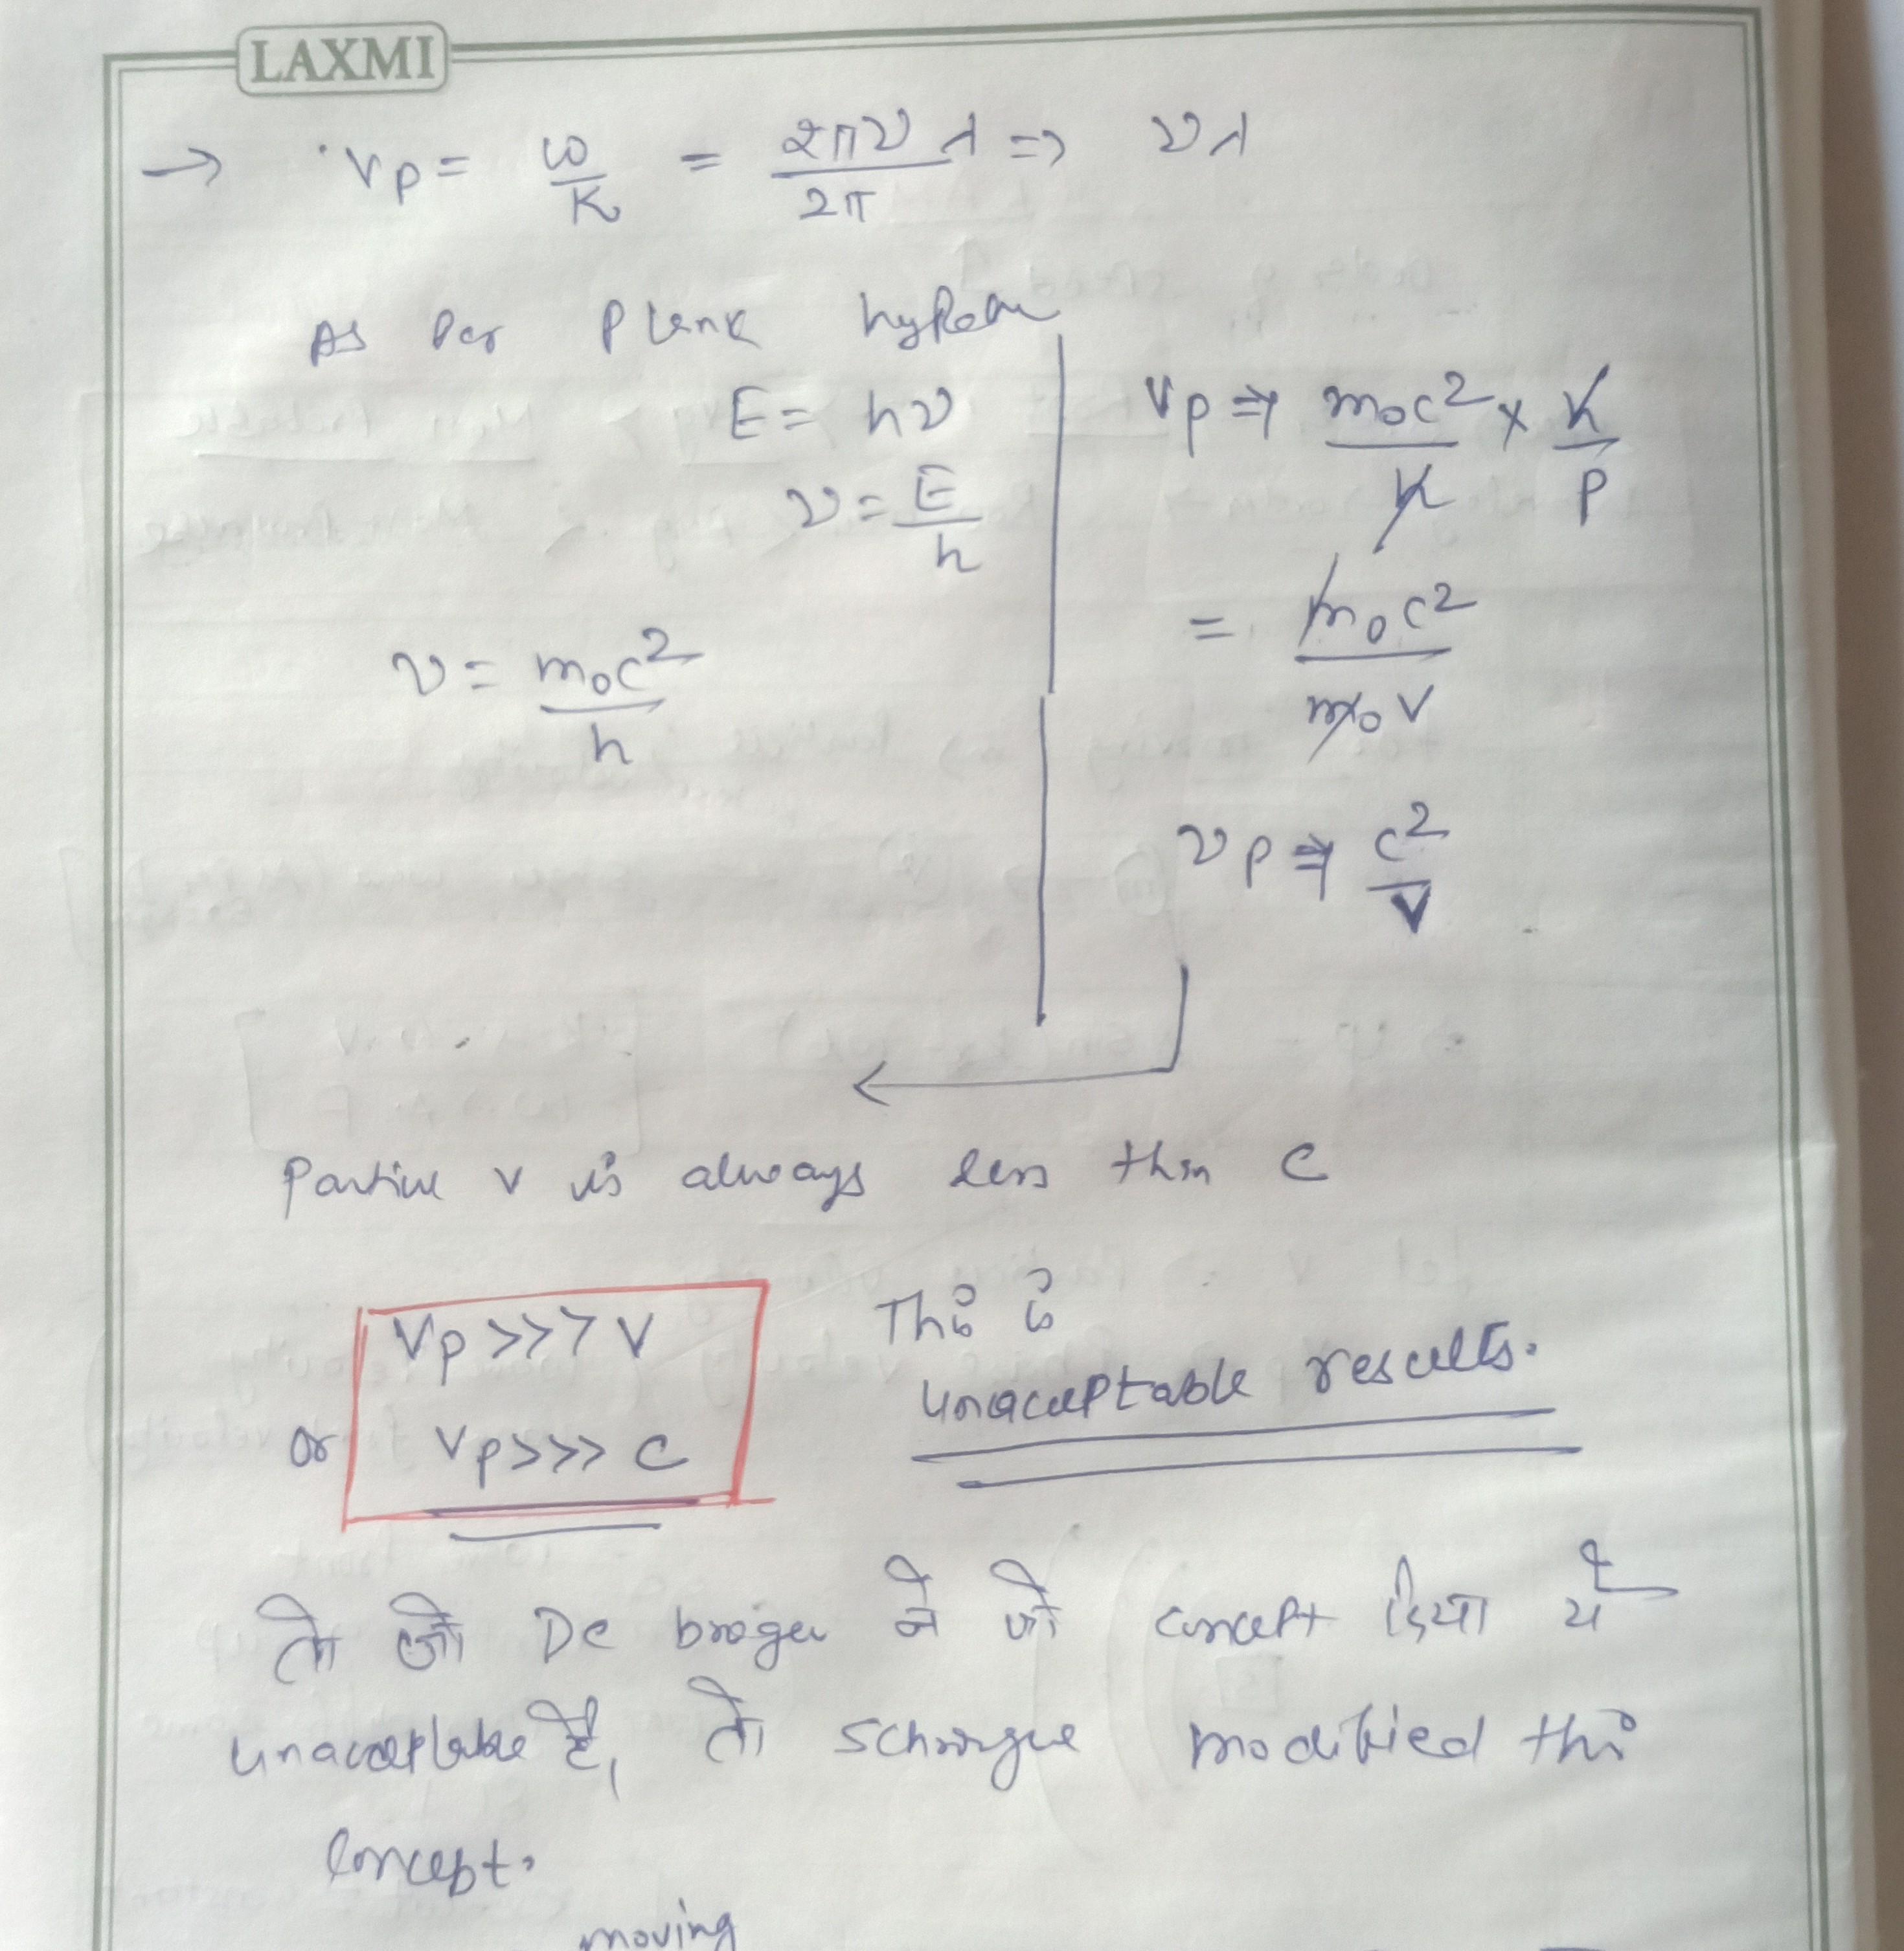 LAXMI
→ Vp = ω/K = 2πν λ/2π => νλ
As Per Plank
E = hν
ν = E/h
ν = m₀c²/h
Vp => m₀c²/h × h/p
= m₀c²/m₀V
νp => c²/V
v is always less than C
Vp >>> V
or Vp >>> C
This is
unacceptable results.
तो जो De ने जो concept दिया ये
unacceptable है, तो modified this
Concept.
moving